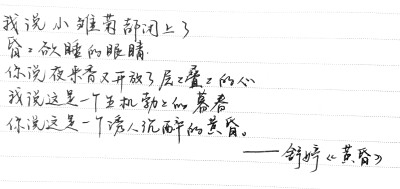 我说小雏菊都闭上了
昏昏欲睡的眼睛
你说夜来香又开放了层层叠叠的心
我说这是一个生机勃勃的暮春
你说这是一个诱人沉醉的黄昏。
——舒婷《黄昏》